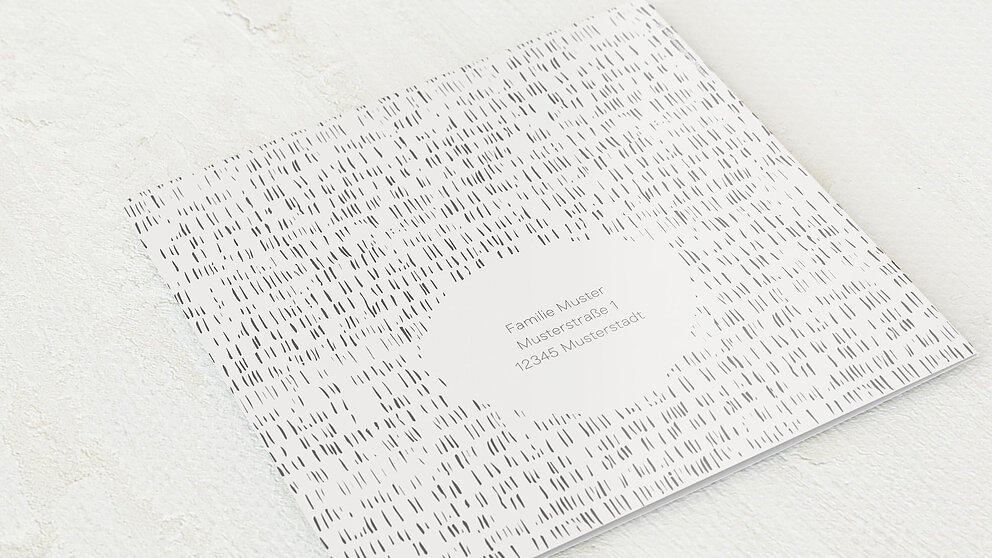 Familie Muster
Musterstraße 1
12345 Musterstadt